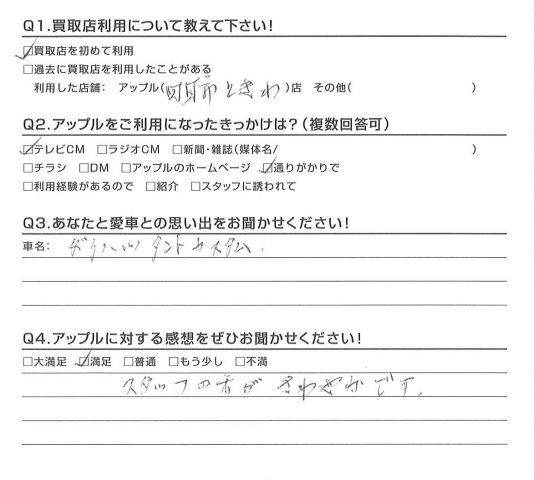 Q1.買取店利用について教えて下さい!
☑買取店を初めて利用
□過去に買取店を利用したことがある
利用した店舗: アップル(四日市ときわ)店 その他( )
Q2.アップルをご利用になったきっかけは?(複数回答可)
☑テレビCM □ラジオCM □新聞・雑誌(媒体名/ )
□チラシ □DM □アップルのホームページ ☑通りがかりで
□利用経験があるので □紹介 □スタッフに誘われて
Q3.あなたと愛車との思い出をお聞かせください!
車名: ダイハツ タントカスタム.
Q4.アップルに対する感想をぜひお聞かせください!
□大満足 ☑満足 □普通 □もう少し □不満
スタッフの方が さわやかです.